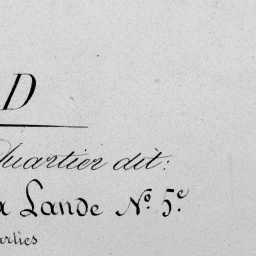 D
Quartier dit:
a Lande N.º 5.e
arties